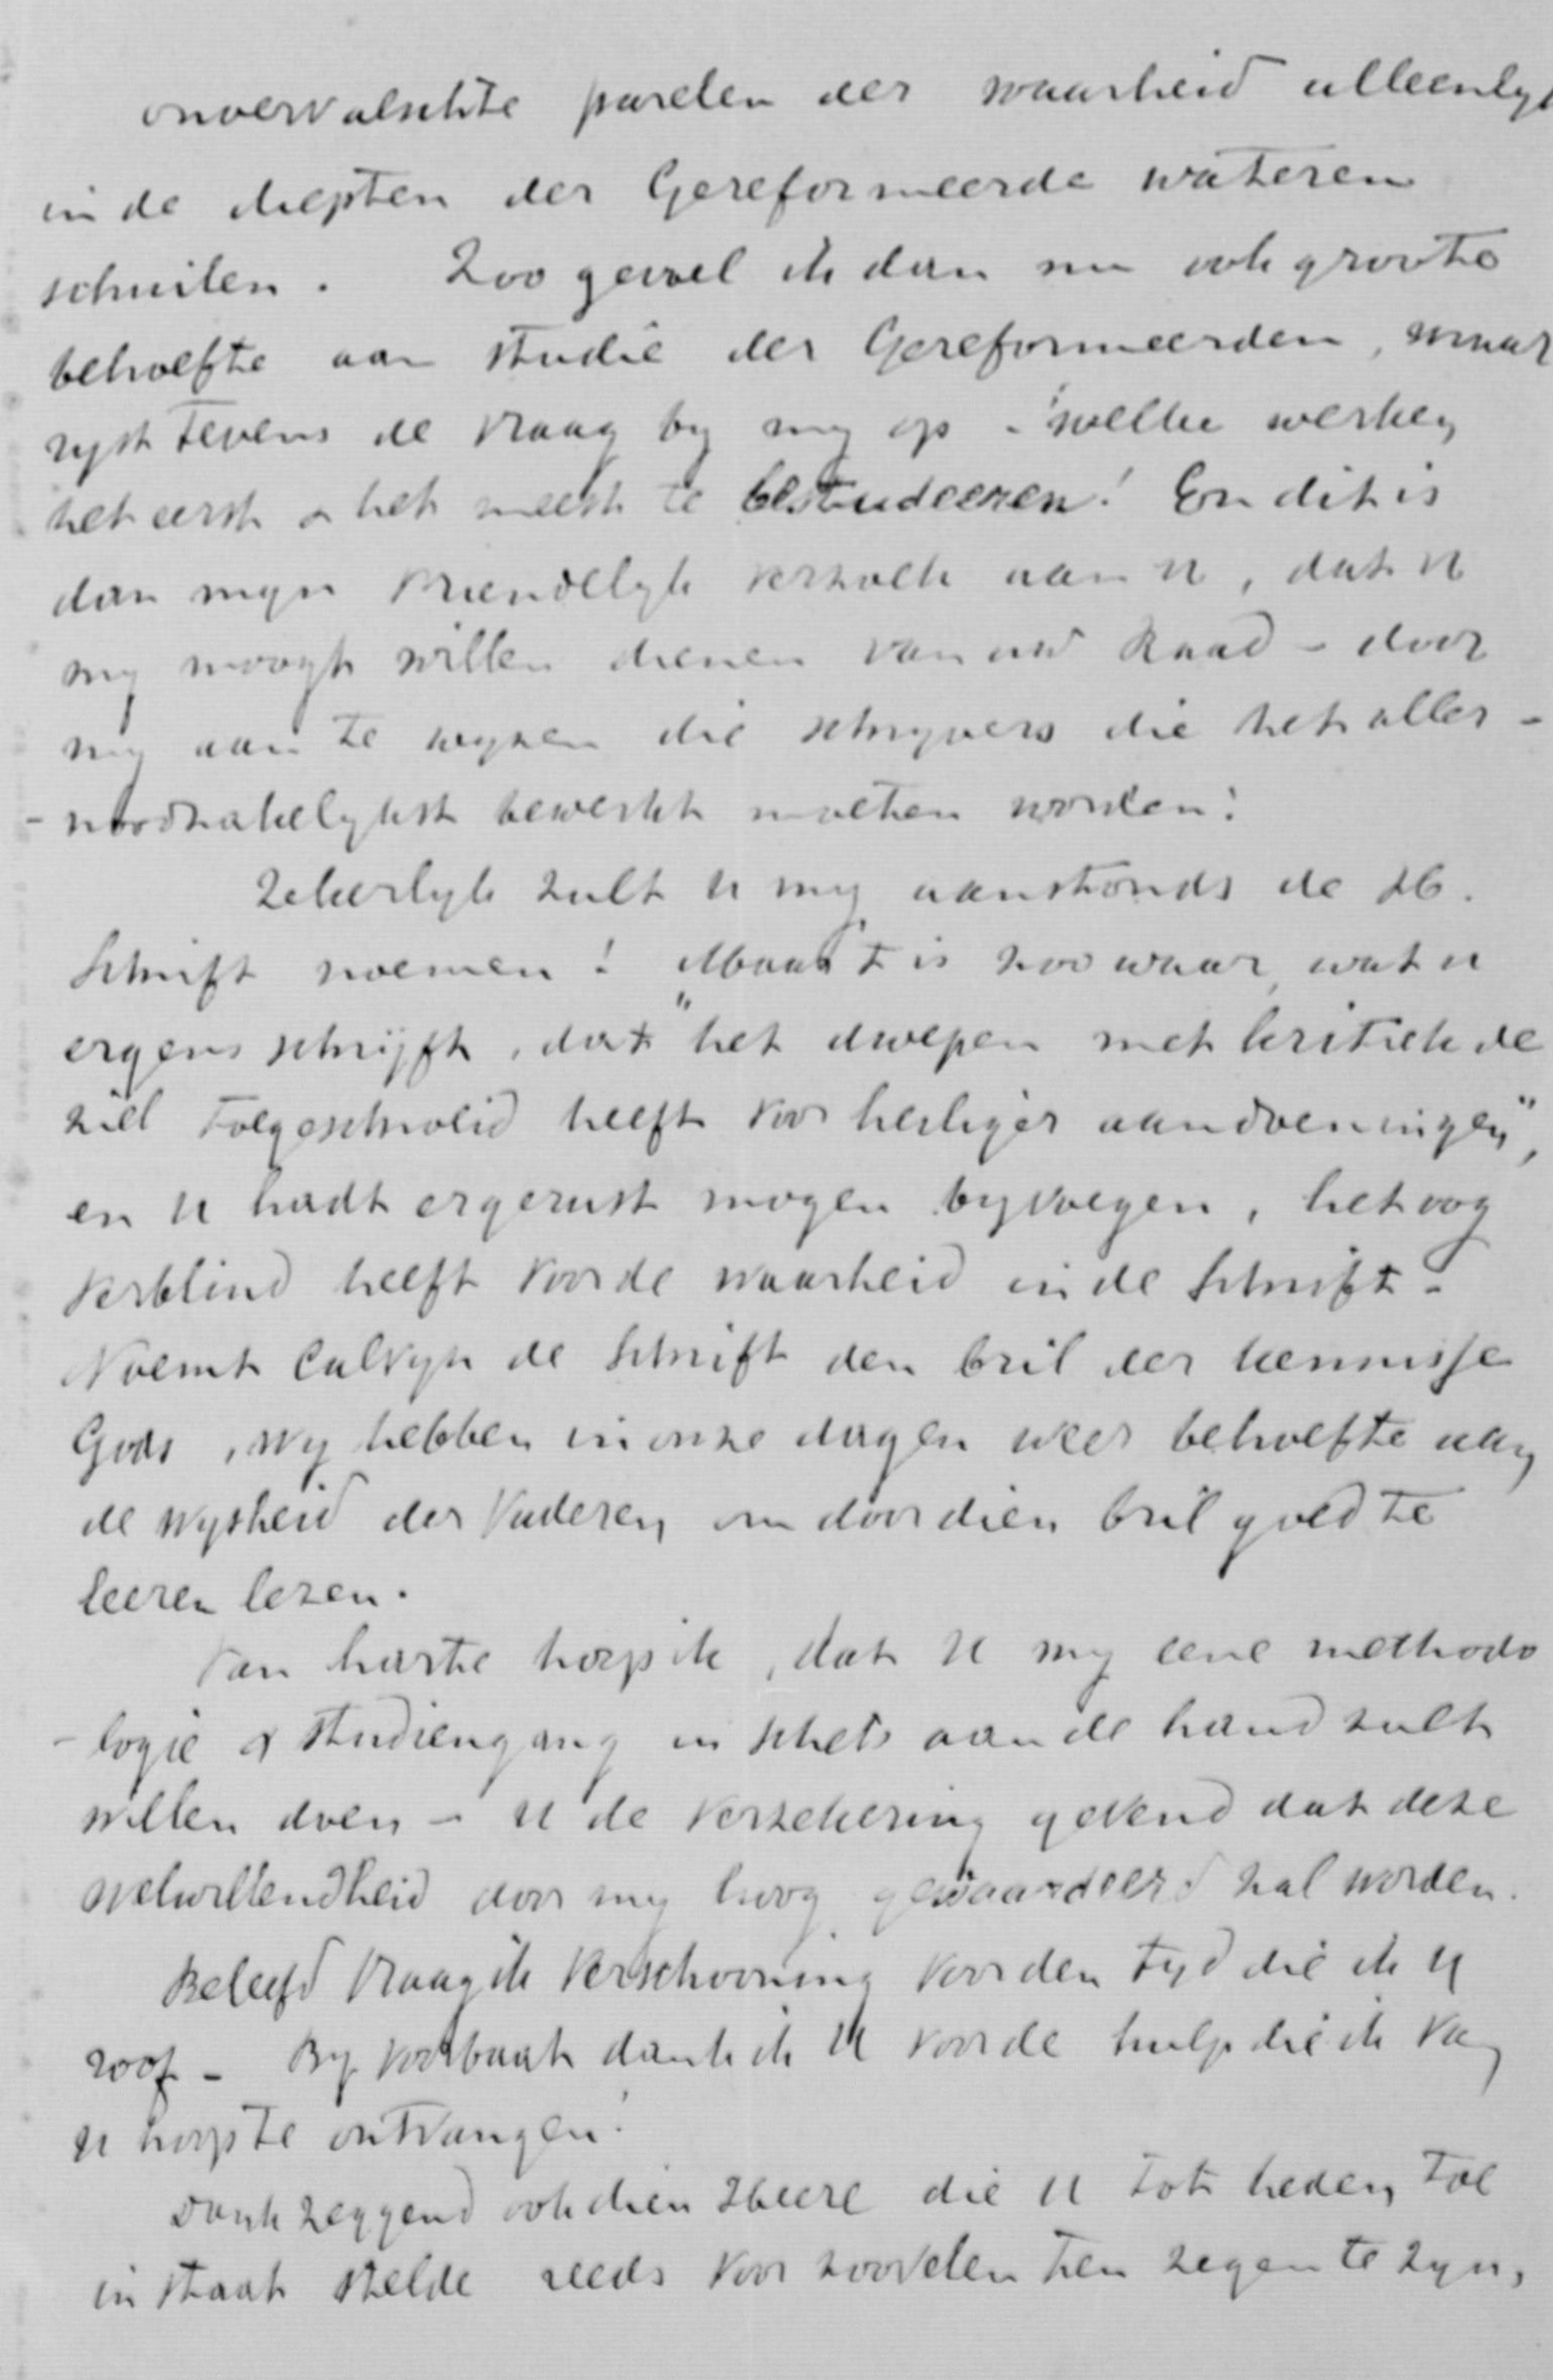 onvervalschte parelen der waarheid alleenlyk
in de diepten der Gereformeerde wateren
schuilen. Zoo gevoel ik dan nu ook groote
behoefte aan studie der Gereformeerden, maar
ryst tevens de vraag by my op - welke werken
het eerst & het meest te bestudeeren! En dit is
dan myn vriendelyk verzoek aan U, dat U
my moogt willen dienen van uw Raad - door
my aan te wyzen die schryvers die het aller-
-noodzakelykst bewerkt moeten worden!
Zekerlyk zult U my aanstonds de H.
Schrift noemen! Maar 't is zoo waar, wat U
ergens schrijft, dat "het dwepen met kritiek de
ziel toegeschroeid heeft voor heiliger aandoeningen",
en U hadt er gerust mogen byvoegen, het oog
verblind heeft voor de waarheid in de Schrift -
Noemt Calvyn de Schrift den bril der kennisse
Gods, wy hebben in onze dagen weer behoefte aan
de wysheid der Vaderen om door dien bril goed te
leeren lezen.
Van harte hoop ik, dat U my eene methodo
-logie of studiengang in schets aan de hand zult
willen doen - U de verzekering gevend dat deze
welwillendheid door my hoog gewaardeerd zal worden.
Beleefd vraag ik verschooning voor den tyd die ik U
roof - By voorbaat dank ik U voor de hulp die ik van
U hoop te ontvangen!
Dank zeggend ook dien Heere die U tot heden toe
in staat stelde reeds voor zoovelen ten zegen te zyn,